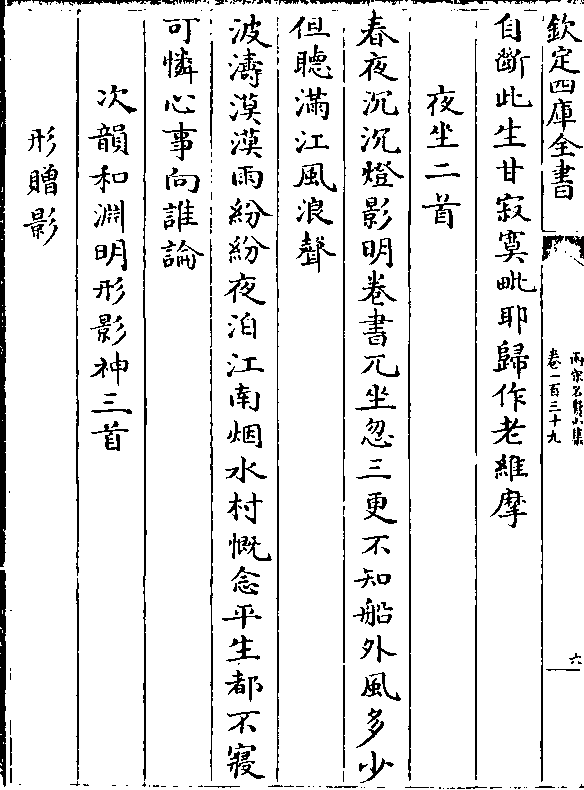 欽定四庫全書
兩宋名賢小集
卷一百三十九
六
自斷此生甘寂寞毗耶歸作老維摩
夜坐二首
春夜沉沉燈影明卷書兀坐忽三更不知船外風多少
但聽滿江風浪聲
波濤漠漠雨紛紛夜泊江南烟水村慨念平生都不寢
可憐心事向誰論
次韻和淵明形影神三首
形贈影